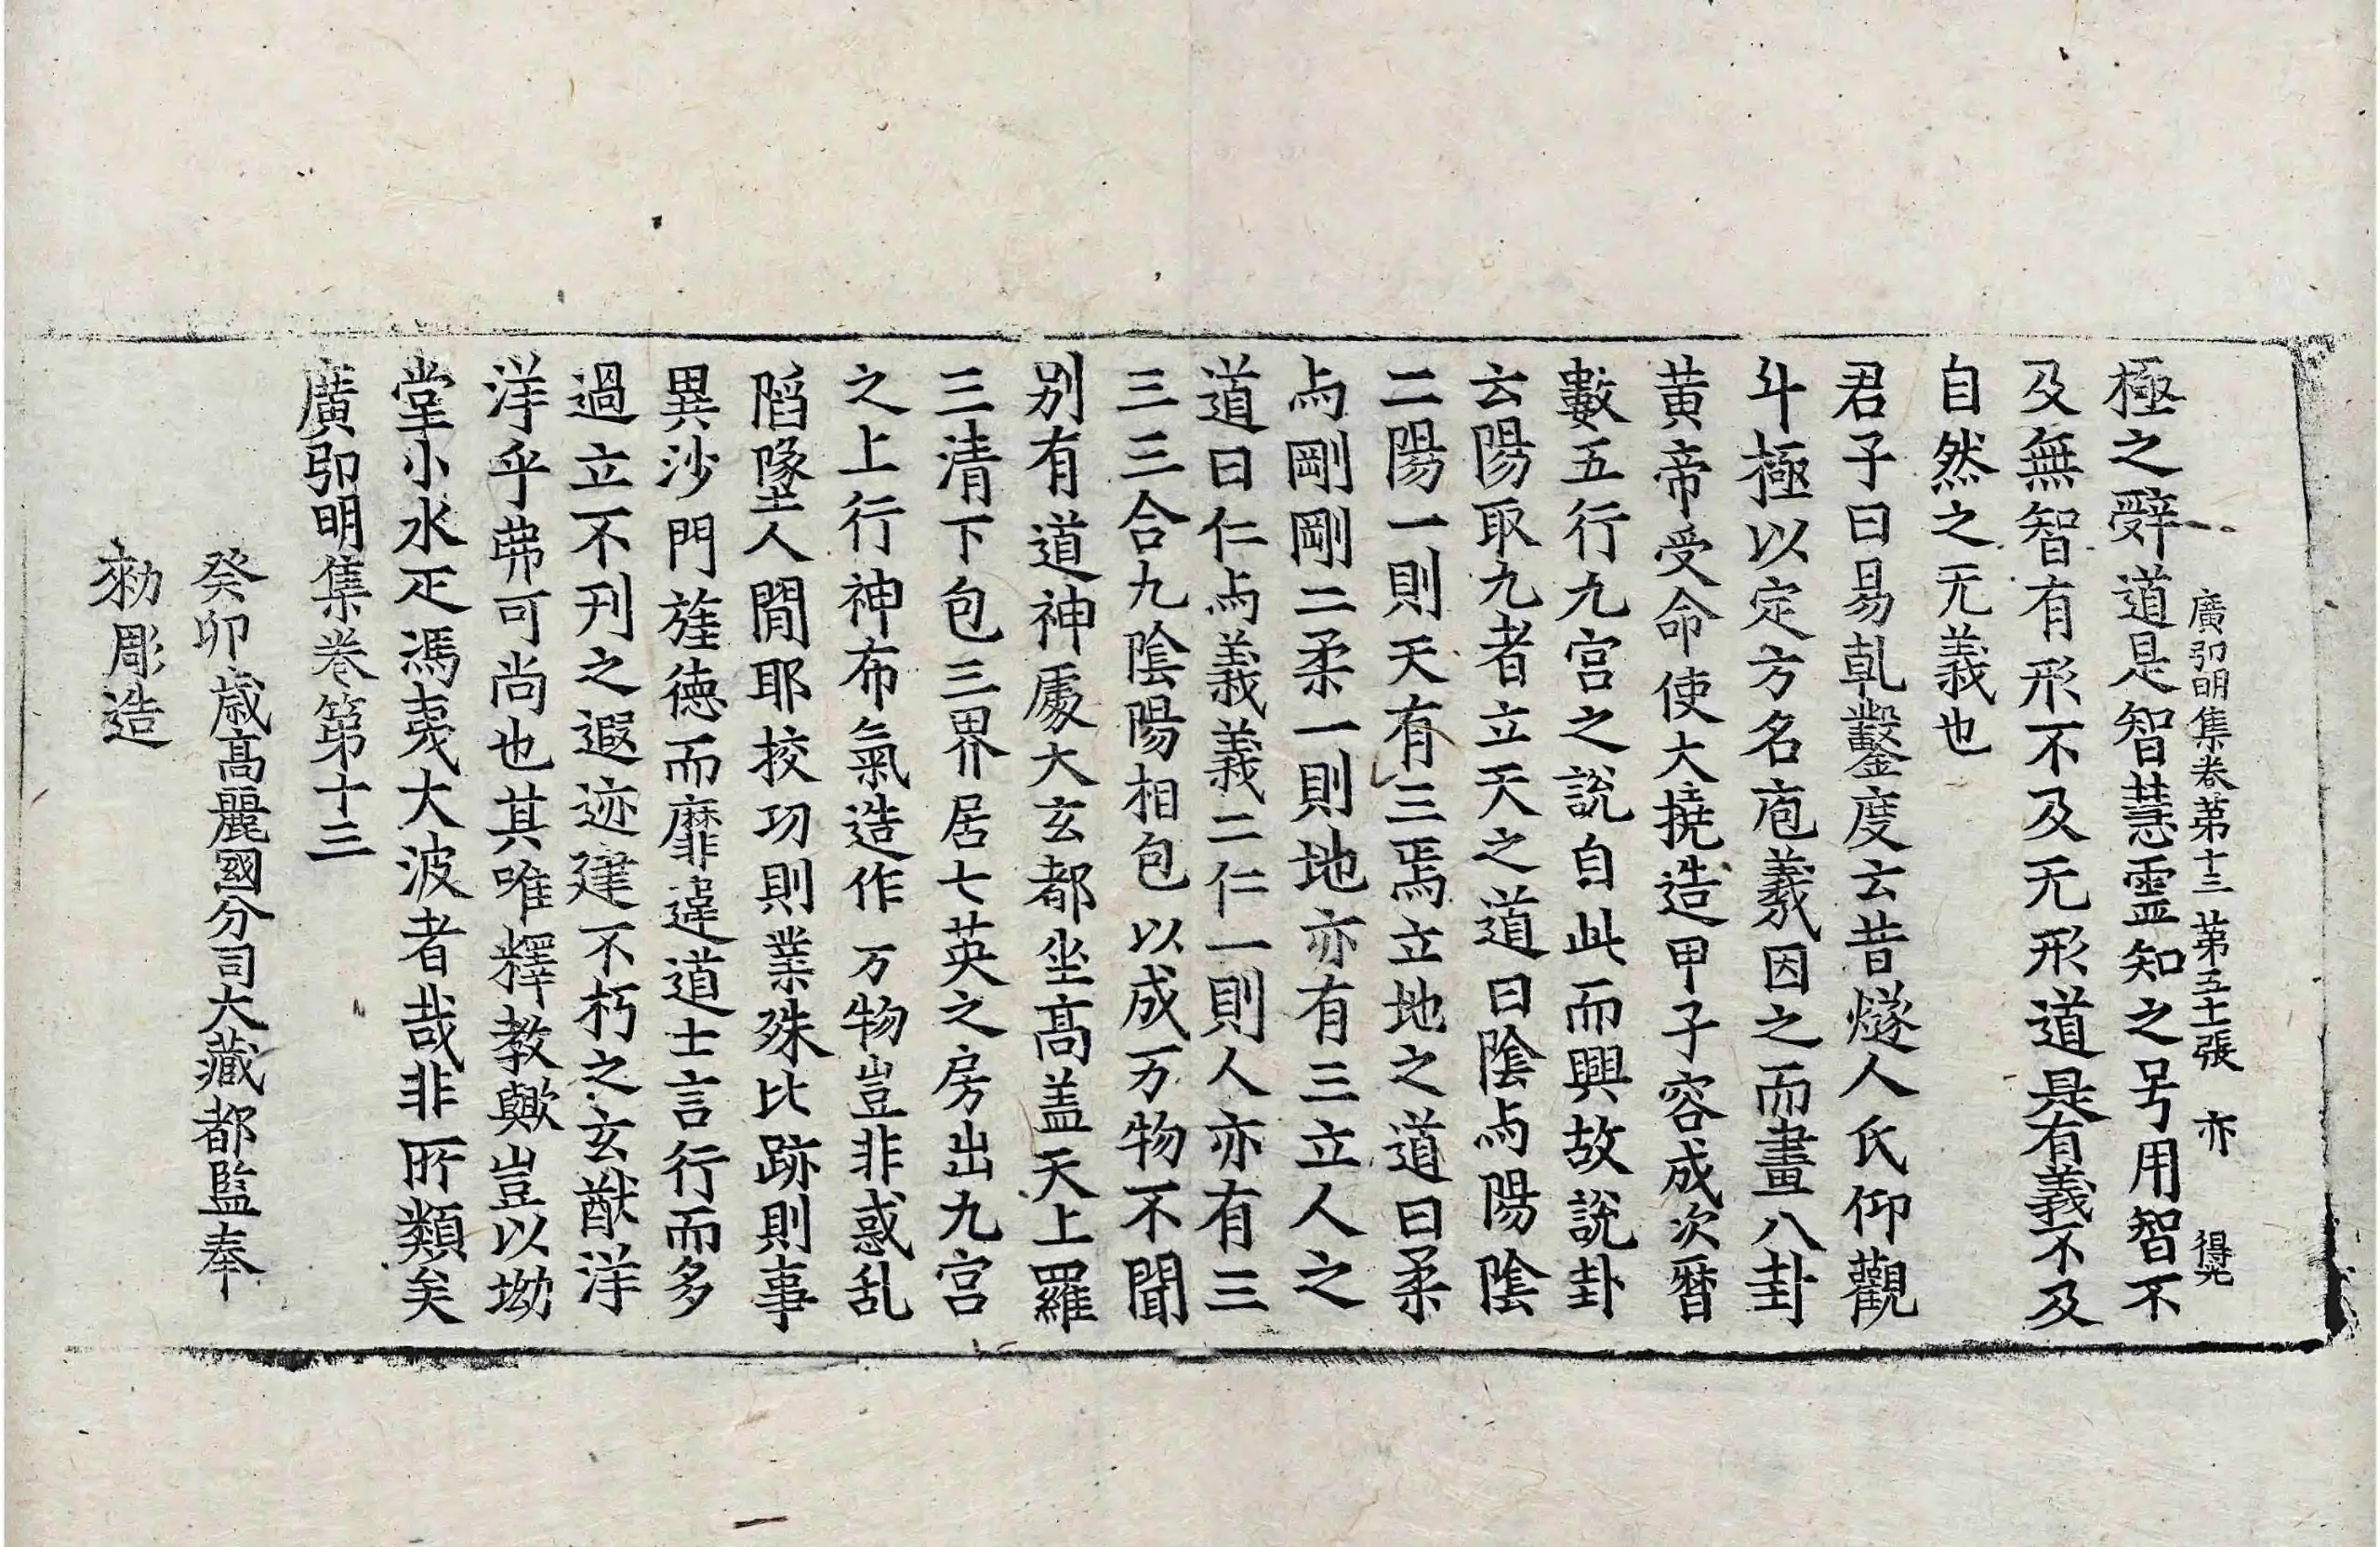 廣弘明集卷第十三 第五十張 亦 得光
極之辤道是智慧靈知之号用智不
及無智有形不及无形道是有義不及
自然之无義也
君子曰易乹鑿度云昔燧人氏仰觀
斗極以定方名庖羲因之而畫八卦
黄帝受命使大撓造甲子容成次曆
數五行九宫之說自此而興故說卦
云陽取九者立天之道曰陰与陽陰
二陽一則天有三焉立地之道曰柔
与剛剛二柔一則地亦有三立人之
道曰仁与義義二仁一則人亦有三
三三合九陰陽相包以成万物不聞
别有道神處大玄都坐髙盖天上羅
三清下包三界居七英之房出九宫
之上行神布氣造作万物豈非惑乱
䧟墬人間耶挍功則業殊比跡則事
異沙門旌德而靡違道士言行而多
過立不刋之遐迹建不朽之玄猷洋
洋乎弗可尚也其唯釋教歟豈以坳
堂小水疋馮夷大波者哉非所類矣
廣弘明集卷第十三
癸卯歳髙麗國分司大藏都監奉
勑彫造